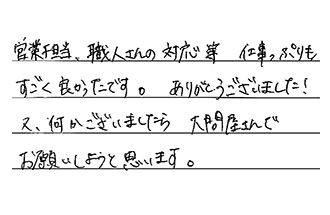 営業担当、職人さんの対応等 仕事っぷりも
すごく良かったです。 ありがとうございました！
又、何かございましたら 大問屋さんで
お願いしようと思います。